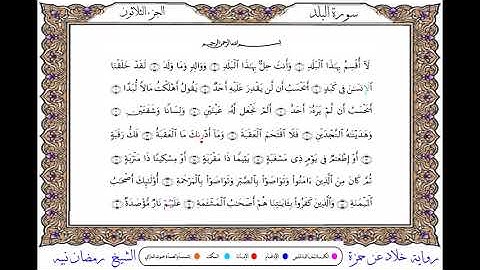 سورة البلد
الجزء الثلاثون
بسم الله الرحمن الرحيم
لَآ أُقْسِمُ بِهَٰذَا ٱلْبَلَدِ وَأَنتَ حِلٌّۢ بِهَٰذَا ٱلْبَلَدِ وَوَالِدٍ وَمَا وَلَدَ لَقَدْ خَلَقْنَا
ٱلْإِنسَٰنَ فِى كَبَدٍ أَيَحْسَبُ أَن لَّن يَقْدِرَ عَلَيْهِ أَحَدٌ يَقُولُ أَهْلَكْتُ مَالًا لُّبَدًا
أَيَحْسَبُ أَن لَّمْ يَرَهُۥٓ أَحَدٌ أَلَمْ نَجْعَل لَّهُۥ عَيْنَيْنِ وَلِسَانًا وَشَفَتَيْنِ
وَهَدَيْنَٰهُ ٱلنَّجْدَيْنِ فَلَا ٱقْتَحَمَ ٱلْعَقَبَةَ وَمَآ أَدْرَىٰكَ مَا ٱلْعَقَبَةُ فَكُّ رَقَبَةٍ
أَوْ إِطْعَٰمٌ فِى يَوْمٍ ذِى مَسْغَبَةٍ يَتِيمًا ذَا مَقْرَبَةٍ أَوْ مِسْكِينًا ذَا مَتْرَبَةٍ
ثُمَّ كَانَ مِنَ ٱلَّذِينَ ءَامَنُوا۟ وَتَوَاصَوْا۟ بِٱلصَّبْرِ وَتَوَاصَوْا۟ بِٱلْمَرْحَمَةِ أُو۟لَٰٓئِكَ أَصْحَٰبُ
ٱلْمَيْمَنَةِ وَٱلَّذِينَ كَفَرُوا۟ بِـَٔايَٰتِنَا هُمْ أَصْحَٰبُ ٱلْمَشْـَٔمَةِ عَلَيْهِمْ نَارٌ مُّؤْصَدَةٌۢ
رواية خلاد عن حمزة
الإدغام
الإمالة
السكت
الشيخ رمضان نبيه